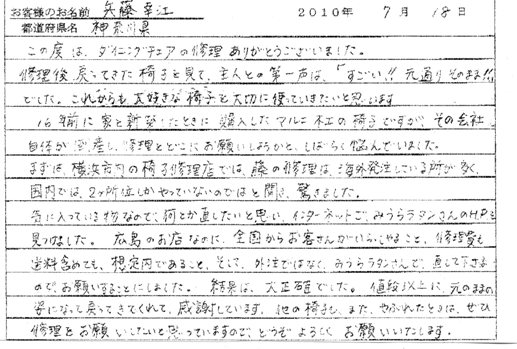 お客様のお名前 兵藤 幸江 2010年 7月 18日
都道府県名 神奈川県
この度は、ダイニングチェアの修理ありがとうございました。
修理後戻ってきた椅子を見て、主人との第一声は、「すごい!! 元通りそのまま!!」
でした。これからも大好きな椅子を大切に使っていきたいと思います
16年前に家を新築したときに購入したマルニ木工の椅子ですが、その会社
自体が倒産し、修理をどこにお願いしようかと、しばらく悩んでいました。
まずは、横浜市内の椅子修理店では、籐の修理は、海外発注している所が多く、
国内では、2ヶ所位しかやっていないのではと聞き、驚きました。
気に入っている物なので、何とか直したいと思い、インターネットで、みうらラタンさんのHPを
見つけました。広島のお店なのに、全国からお客さんがいらっしゃること、修理費も
送料含めても、想定内であること、そして、外注ではなく、みうらラタンさんで、直して下さる
ので、お願いすることにしました。結果は、大正確でした。値段以上に、元のままの
姿になって戻ってきてくれて、感謝しています。他の椅子も、また、やぶれたときは、ぜひ
修理をお願いしたいと思っていますので、どうぞよろしくお願いいたします。